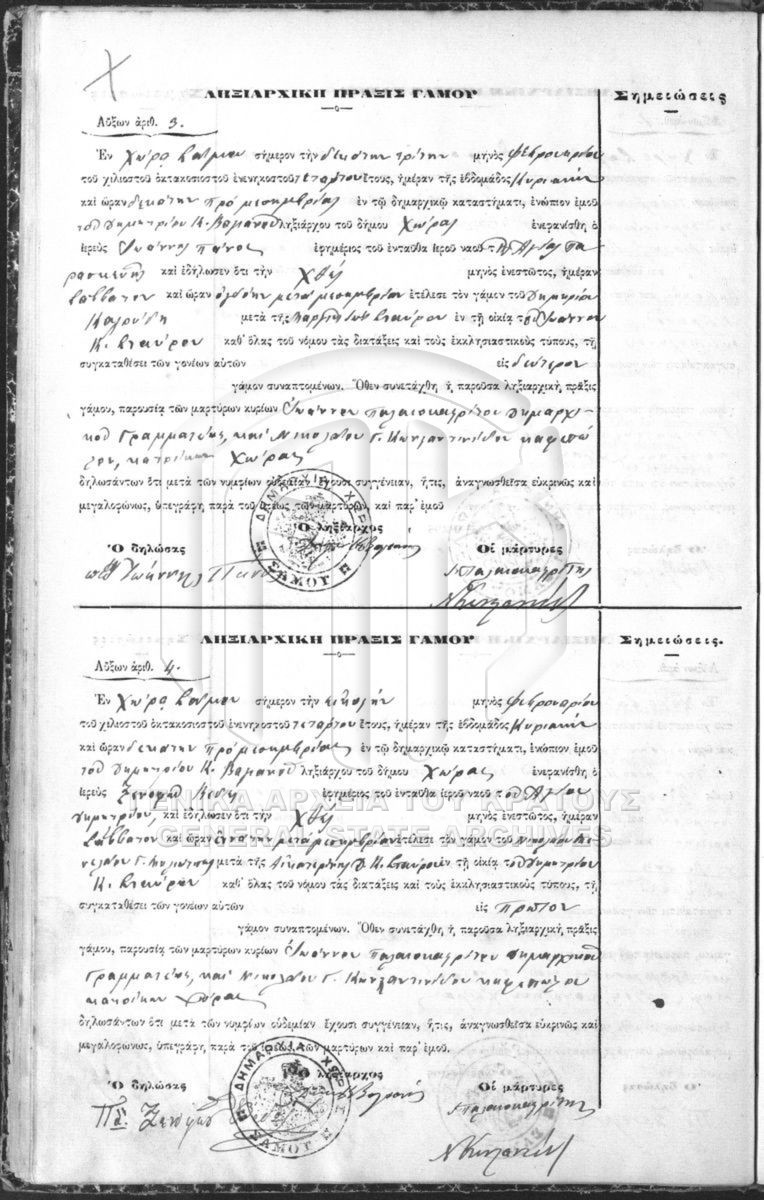 ΛΗΞΙΑΡΧΙΚΗ ΠΡΑΞΙΣ ΓΑΜΟΥ
Σημειώσεις
Αὔξων ἀριθ. 3.
Ἐν Χώρᾳ Σάμου σήμερον τὴν δεκάτην τρίτην μηνὸς Φεβρουαρίου
τοῦ χιλιοστοῦ ὀκτακοσιοστοῦ ἐνενηκοστοῦ τετάρτου ἔτους, ἡμέραν τῆς ἑβδομάδος Κυριακὴν
καὶ ὥραν δεκάτην πρὸ μεσημβρίας ἐν τῷ δημαρχικῷ καταστήματι, ἐνώπιον ἐμοῦ
τοῦ Δημητρίου Κ. ληξιάρχου τοῦ δήμου Χώρας ἐνεφανίσθη ὁ
ἱερεὺς Ἰωάννης Πάνος ἐφημέριος τοῦ ἐνταῦθα ἱεροῦ ναοῦ τῆς Ἁγίας Πα
ρασκευῆς καὶ ἐδήλωσεν ὅτι τὴν χθὲς μηνὸς ἐνεστῶτος, ἡμέραν
Σάββατον καὶ ὥραν ὀγδόην μετὰ μεσημβρίαν ἐτέλεσε τὸν γάμον τοῦ Δημητρίου
μετὰ τῆς Σταύρου ἐν τῇ οἰκίᾳ τοῦ Ἰωάννου
Κ. Σταύρου καθ᾽ ὅλας τοῦ νόμου τὰς διατάξεις καὶ τοὺς ἐκκλησιαστικοὺς τύπους, τῇ
συγκαταθέσει τῶν γονέων αὐτῶν εἰς δεύτερον
γάμον συναπτομένων. Ὅθεν συνετάχθη ἡ παροῦσα ληξιαρχικὴ πρᾶξις
γάμου, παρουσίᾳ τῶν μαρτύρων κυρίων Ἰωάννου Παλαιοκαστρίτου δημαρχι-
κοῦ Γραμματέως, καὶ Νικολάου Γ. Κωνσταντινίδου καφεπώ
λου, κατοίκων Χώρας
δηλωσάντων ὅτι μετὰ τῶν νυμφίων οὐδεμίαν ἔχουσι συγγένειαν, ἥτις, ἀναγνωσθεῖσα εὐκρινῶς καὶ
μεγαλοφώνως, ὑπεγράφη παρὰ τοῦ ἱερέως, τῶν μαρτύρων, καὶ παρ᾽ ἐμοῦ
Ὁ ληξίαρχος
Ὁ δηλώσας
Οἱ μάρτυρες
Ἰωάννης Πάνος
Παλαιοκαστρίτης
ΔΗΜΑΡΧΙΑ ΧΩΡΑΣ ΣΑΜΟΥ
ΛΗΞΙΑΡΧΙΚΗ ΠΡΑΞΙΣ ΓΑΜΟΥ
Σημειώσεις.
Αὔξων ἀριθ. 4.
Ἐν Χώρᾳ Σάμου σήμερον τὴν εἰκοστὴν μηνὸς Φεβρουαρίου
τοῦ χιλιοστοῦ ὀκτακοσιοστοῦ ἐνενηκοστοῦ τετάρτου ἔτους, ἡμέραν τῆς ἑβδομάδος Κυριακὴν
καὶ ὥραν δεκάτην πρὸ μεσημβρίας ἐν τῷ δημαρχικῷ καταστήματι, ἐνώπιον ἐμοῦ
τοῦ Δημητρίου Κ. ληξιάρχου τοῦ δήμου Χώρας ἐνεφανίσθη ὁ
ἱερεὺς ἐφημέριος τοῦ ἐνταῦθα ἱεροῦ ναοῦ τοῦ Ἁγίου
Δημητρίου, καὶ ἐδήλωσεν ὅτι τὴν χθὲς μηνὸς ἐνεστῶτος, ἡμέραν
Σάββατον καὶ ὥραν ἐννάτην μετὰ μεσημβρίαν ἐτέλεσε τὸν γάμον τοῦ Νικολάου
μετὰ τῆς Αἰκατερίνης Δ. Κ. Σταύρου ἐν τῇ οἰκίᾳ τοῦ Δημητρίου
Κ. Σταύρου καθ᾽ ὅλας τοῦ νόμου τὰς διατάξεις καὶ τοὺς ἐκκλησιαστικοὺς τύπους, τῇ
συγκαταθέσει τῶν γονέων αὐτῶν εἰς πρῶτον
γάμον συναπτομένων. Ὅθεν συνετάχθη ἡ παροῦσα ληξιαρχικὴ πρᾶξις
γάμου, παρουσίᾳ τῶν μαρτύρων κυρίων Ἰωάννου Παλαιοκαστρίτου δημαρχικοῦ
Γραμματέως, καὶ Νικολάου Γ. Κωνσταντινίδου καφεπώλου
κατοίκων Χώρας
δηλωσάντων ὅτι μετὰ τῶν νυμφίων οὐδεμίαν ἔχουσι συγγένειαν, ἥτις, ἀναγνωσθεῖσα εὐκρινῶς καὶ
μεγαλοφώνως, ὑπεγράφη παρὰ τοῦ ἱερέως, τῶν μαρτύρων καὶ παρ᾽ ἐμοῦ.
Ὁ ληξίαρχος
Ὁ δηλώσας
Οἱ μάρτυρες
Παλαιοκαστρίτης
ΔΗΜΑΡΧΙΑ ΧΩΡΑΣ ΣΑΜΟΥ
ΓΕΝΙΚΑ ΑΡΧΕΙΑ ΤΟΥ ΚΡΑΤΟΥΣ
GENERAL STATE ARCHIVES